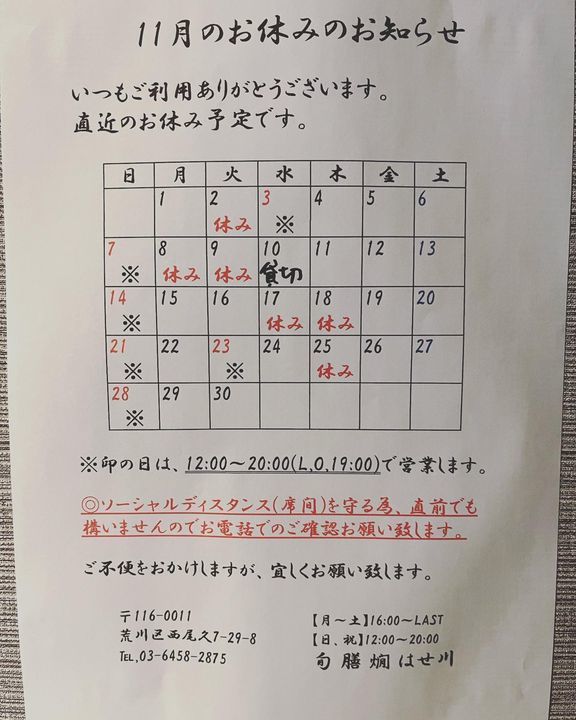 11月のお休みのお知らせ
いつもご利用ありがとうございます。
直近のお休み予定です。
日 月 火 水 木 金 土
1 2 3 4 5 6
休み ※
7 8 9 10 11 12 13
※ 休み 休み 貸切
14 15 16 17 18 19 20
※ 休み 休み
21 22 23 24 25 26 27
※ ※ 休み
28 29 30
※
※卯の日は、12:00～20:00(L,O,19:00)で営業します。
◎ソーシャルディスタンス(席間)を守る為、直前でも
構いませんのでお電話でのご確認お願い致します。
ご不便をおかけしますが、宜しくお願い致します。
〒116-0011
荒川区西尾久7-29-8
TEL,03-6458-2875
【月～土】16:00～LAST
【日、祝】12:00～20:00
旬膳燗 はせ川